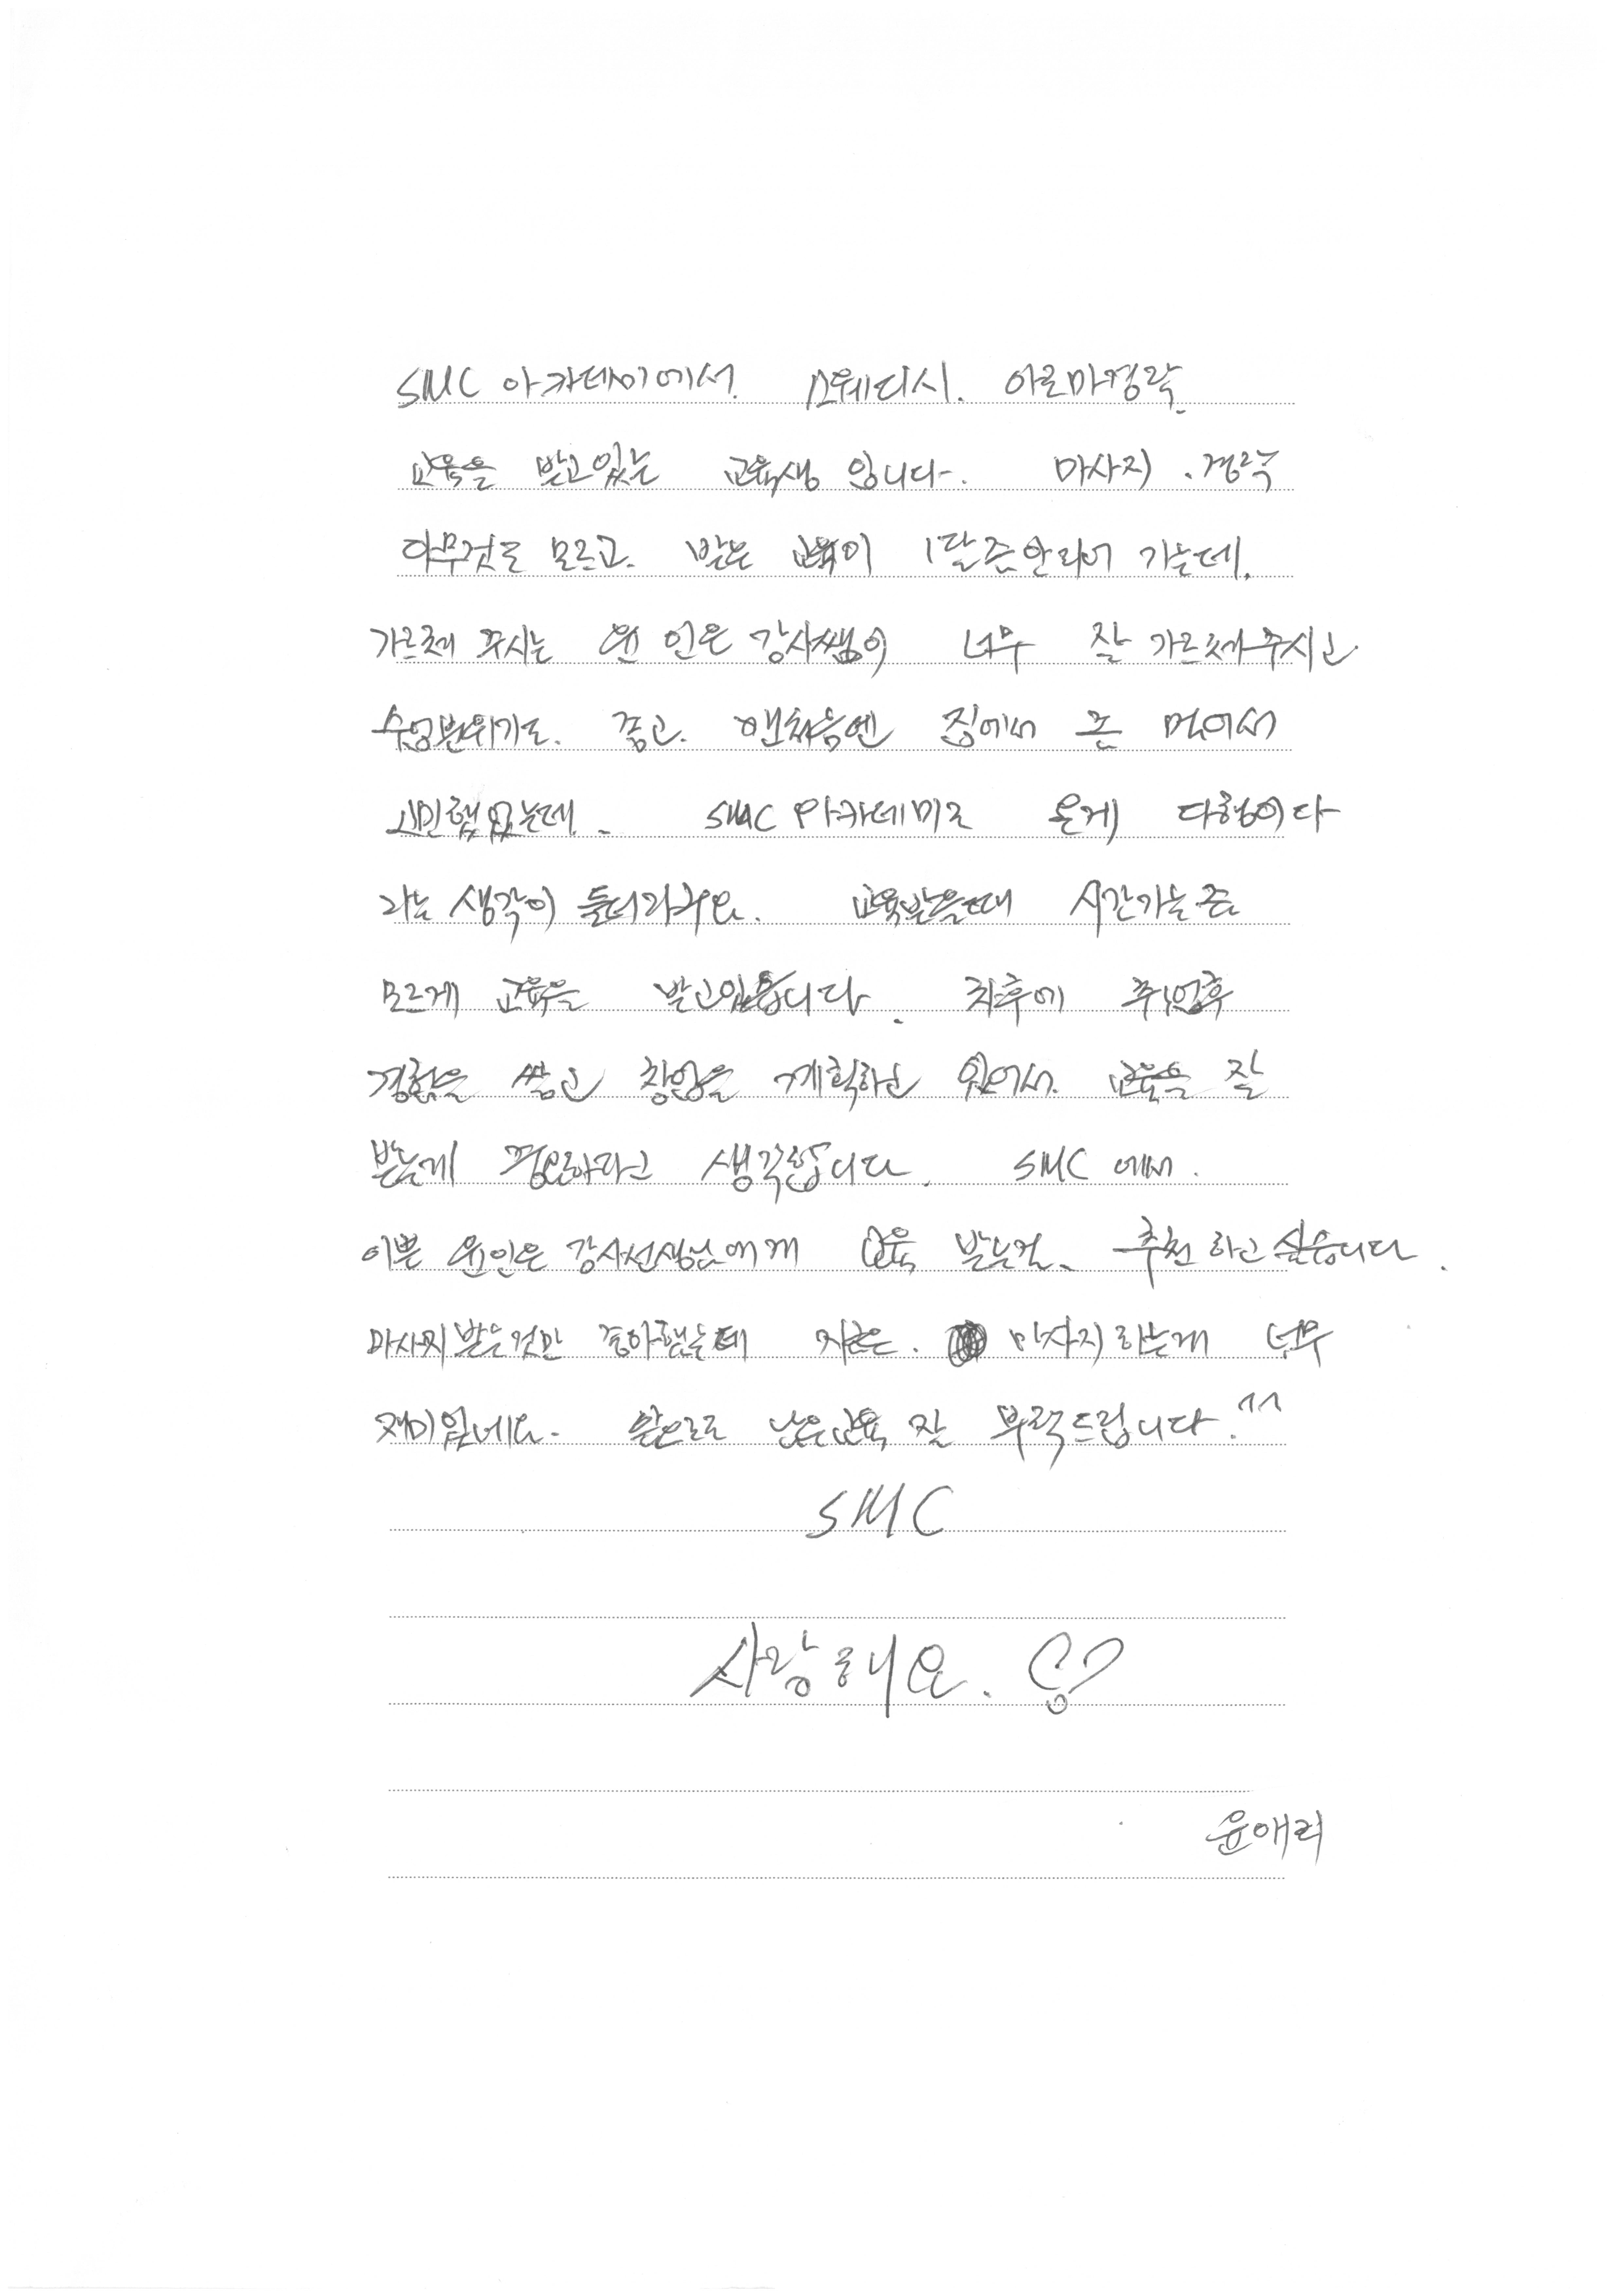 SMC 아카데미에서. 스웨디시. 아로마경락
교육을 받고있는 교육생 입니다. 마사지. 경락
아무것도 모르고. 받는 교육이 1달쯤 되어 가는데.
가르쳐 주시는 원인은강사쌤이 너무 잘 가르쳐주시고
수업분위기도. 좋고. 맨처음엔 집에서 좀 멀어서
고민했었는데. SMC 아카데미로 온게 다행이다
라는 생각이 들더라구요. 교육받을때 시간가는줄
모르게 교육을 받고있습니다. 차후에 취업후
경험을 쌓고 창업을 계획하고 있어서. 교육을 잘
받는게 중요하다고 생각합니다. SMC 에서.
이쁜 원인은 강사선생님에게 교육 받는걸. 추천하고싶습니다.
마사지받는것만 좋아했는데 지금은. 마사지하는게 너무
재미있네요. 앞으로도 남은교육 잘 부탁드립니다.^^
SMC
사랑해요.
윤애리